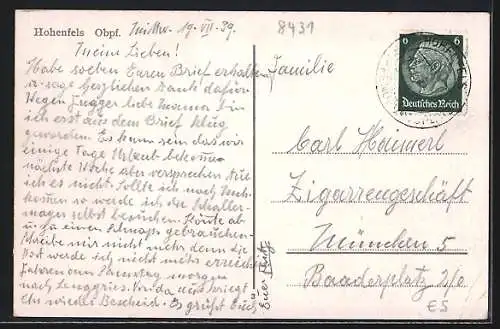 Hohenfels Obpf. Mittw. 19. VII. 39.
8431
Meine Lieben!
Habe soeben Euren Brief erhalten
u. sage herzlichen Dank dafür
Wegen Zugger liebe Mama bin
ich erst aus dem Brief klug
geworden. Es kann sein das wir
einige Tage Urlaub bekommen
nächste Woche aber versprechen tue
ich es nicht. Sollte ich nach
kommen so werde ich die
selbst besuchen. Könnte ab
u. zu einen Schnaps gebrauchen.
Schreibt mir nicht mehr denn die
Post werde ich nicht mehr
Fahren am Samstag morgen
nach Lenggries. Von da aus kriegt
Ihr wieder Bescheid. Es grüßt Euch
Euer
Familie
Carl Haimerl
Zigarrengeschäft
München 5
Baaderplatz 2/0
6 6
Deutsches Reich
ES